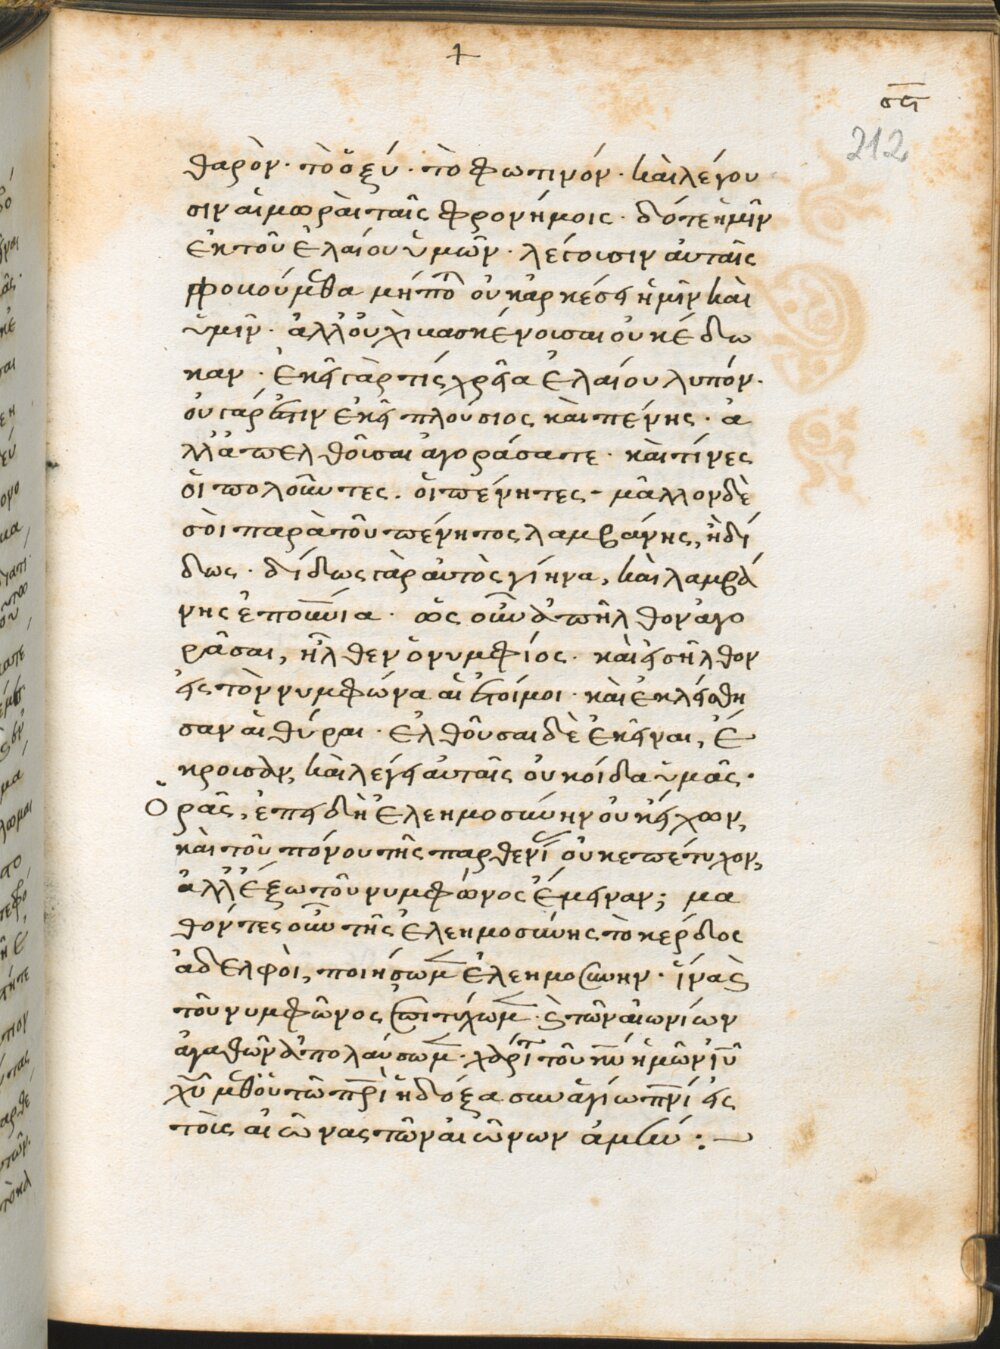 +
σϛ
212
θαρὸν · τὸ ὀξύ · τὸ φωτινόν · καὶ λέγου
σιν αἱ μωραὶ ταῖς φρονήμοις · δότε ἡμῖν
ἐκ τοῦ ἐλαίου ὑμῶν · λέγουσιν αὐταῖς
φοκούμεθα μήποτε οὐκ ἀρκέσει ἡμῖν καὶ
ὑμῖν · ἀλλ' οὐχὶ
καν · ἐκεῖ γὰρ τίς χρεία ἐλαίου λυπόν ·
οὐ γάρ ἐστιν ἐκεῖ πλούσιος καὶ πένης · ἀ
λλὰ ἀπελθοῦσαι ἀγοράσατε · καὶ τίνες
οἱ πολοῦντες · οἱ πένητες · μᾶλλον δὲ
σὸι παρὰ τοῦ πένητος λαμβάνης, ἢ δί
δως · δίδως γὰρ αὐτὸς γίηνα, καὶ λαμβά
νης ἐπουνία · ὡς οὖν ἀπῆλθον ἀγο
ρᾶσαι, ἦλθεν ὁ νυμφίος · καὶ εἰσῆλθον
εἰς τὸν νυμφώνα αἱ ἕτοιμοι · καὶ ἐκλείσθη
σαν αἱ θύραι · ἐλθοῦσαι δὲ ἐκεῖναι, ἔ
κρουσαν, καὶ λέγει αὐταῖς οὐκ οἶδα ὑμᾶς ·
Ὁρᾶς, ἐπειδὴ ἐλεημοσύνην οὐκ εἶχων,
καὶ τοῦ πόνου τῆς παρθενίας οὐκ ἐπέτυχον,
ἀλλ' ἔξω τοῦ νυμφώνος ἔμειναν; μα
θόντες οὖν τῆς ἐλεημοσύνης τὸ κέρδος
ἀδελφοὶ, ποιήσωμεν ἐλεημοσύνην · ἵνα καὶ
τοῦ νυμφῶνος ἐπιτύχωμεν · καὶ τῶν αἰωνίων
ἀγαθῶν ἀπολαύσωμεν · χάριτι τοῦ κυ ἡμῶν ιυ
χυ μεθ' οὗ τῶ πρι ἡ δόξα σὺν ἁγίω πνι εἰς
τοὺς αἰῶνας τῶν αἰώνων ἀμήν :~